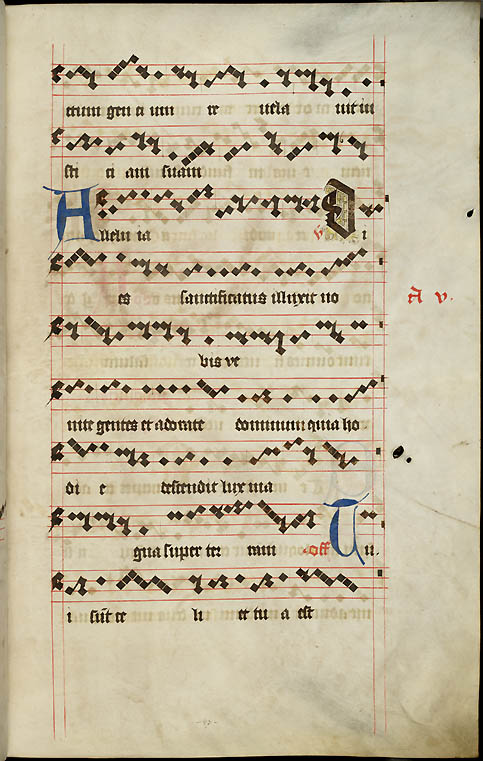 tium gen ti um re uela uit iu
sti ti am suam
Alleluia v D i
es sanctificatus illuxit no
bis ve
nite gentes et adorate dominum quia ho
di e descendit lux ma
gna super ter ram off Tu
i sūt ce li et tu a est
A v.